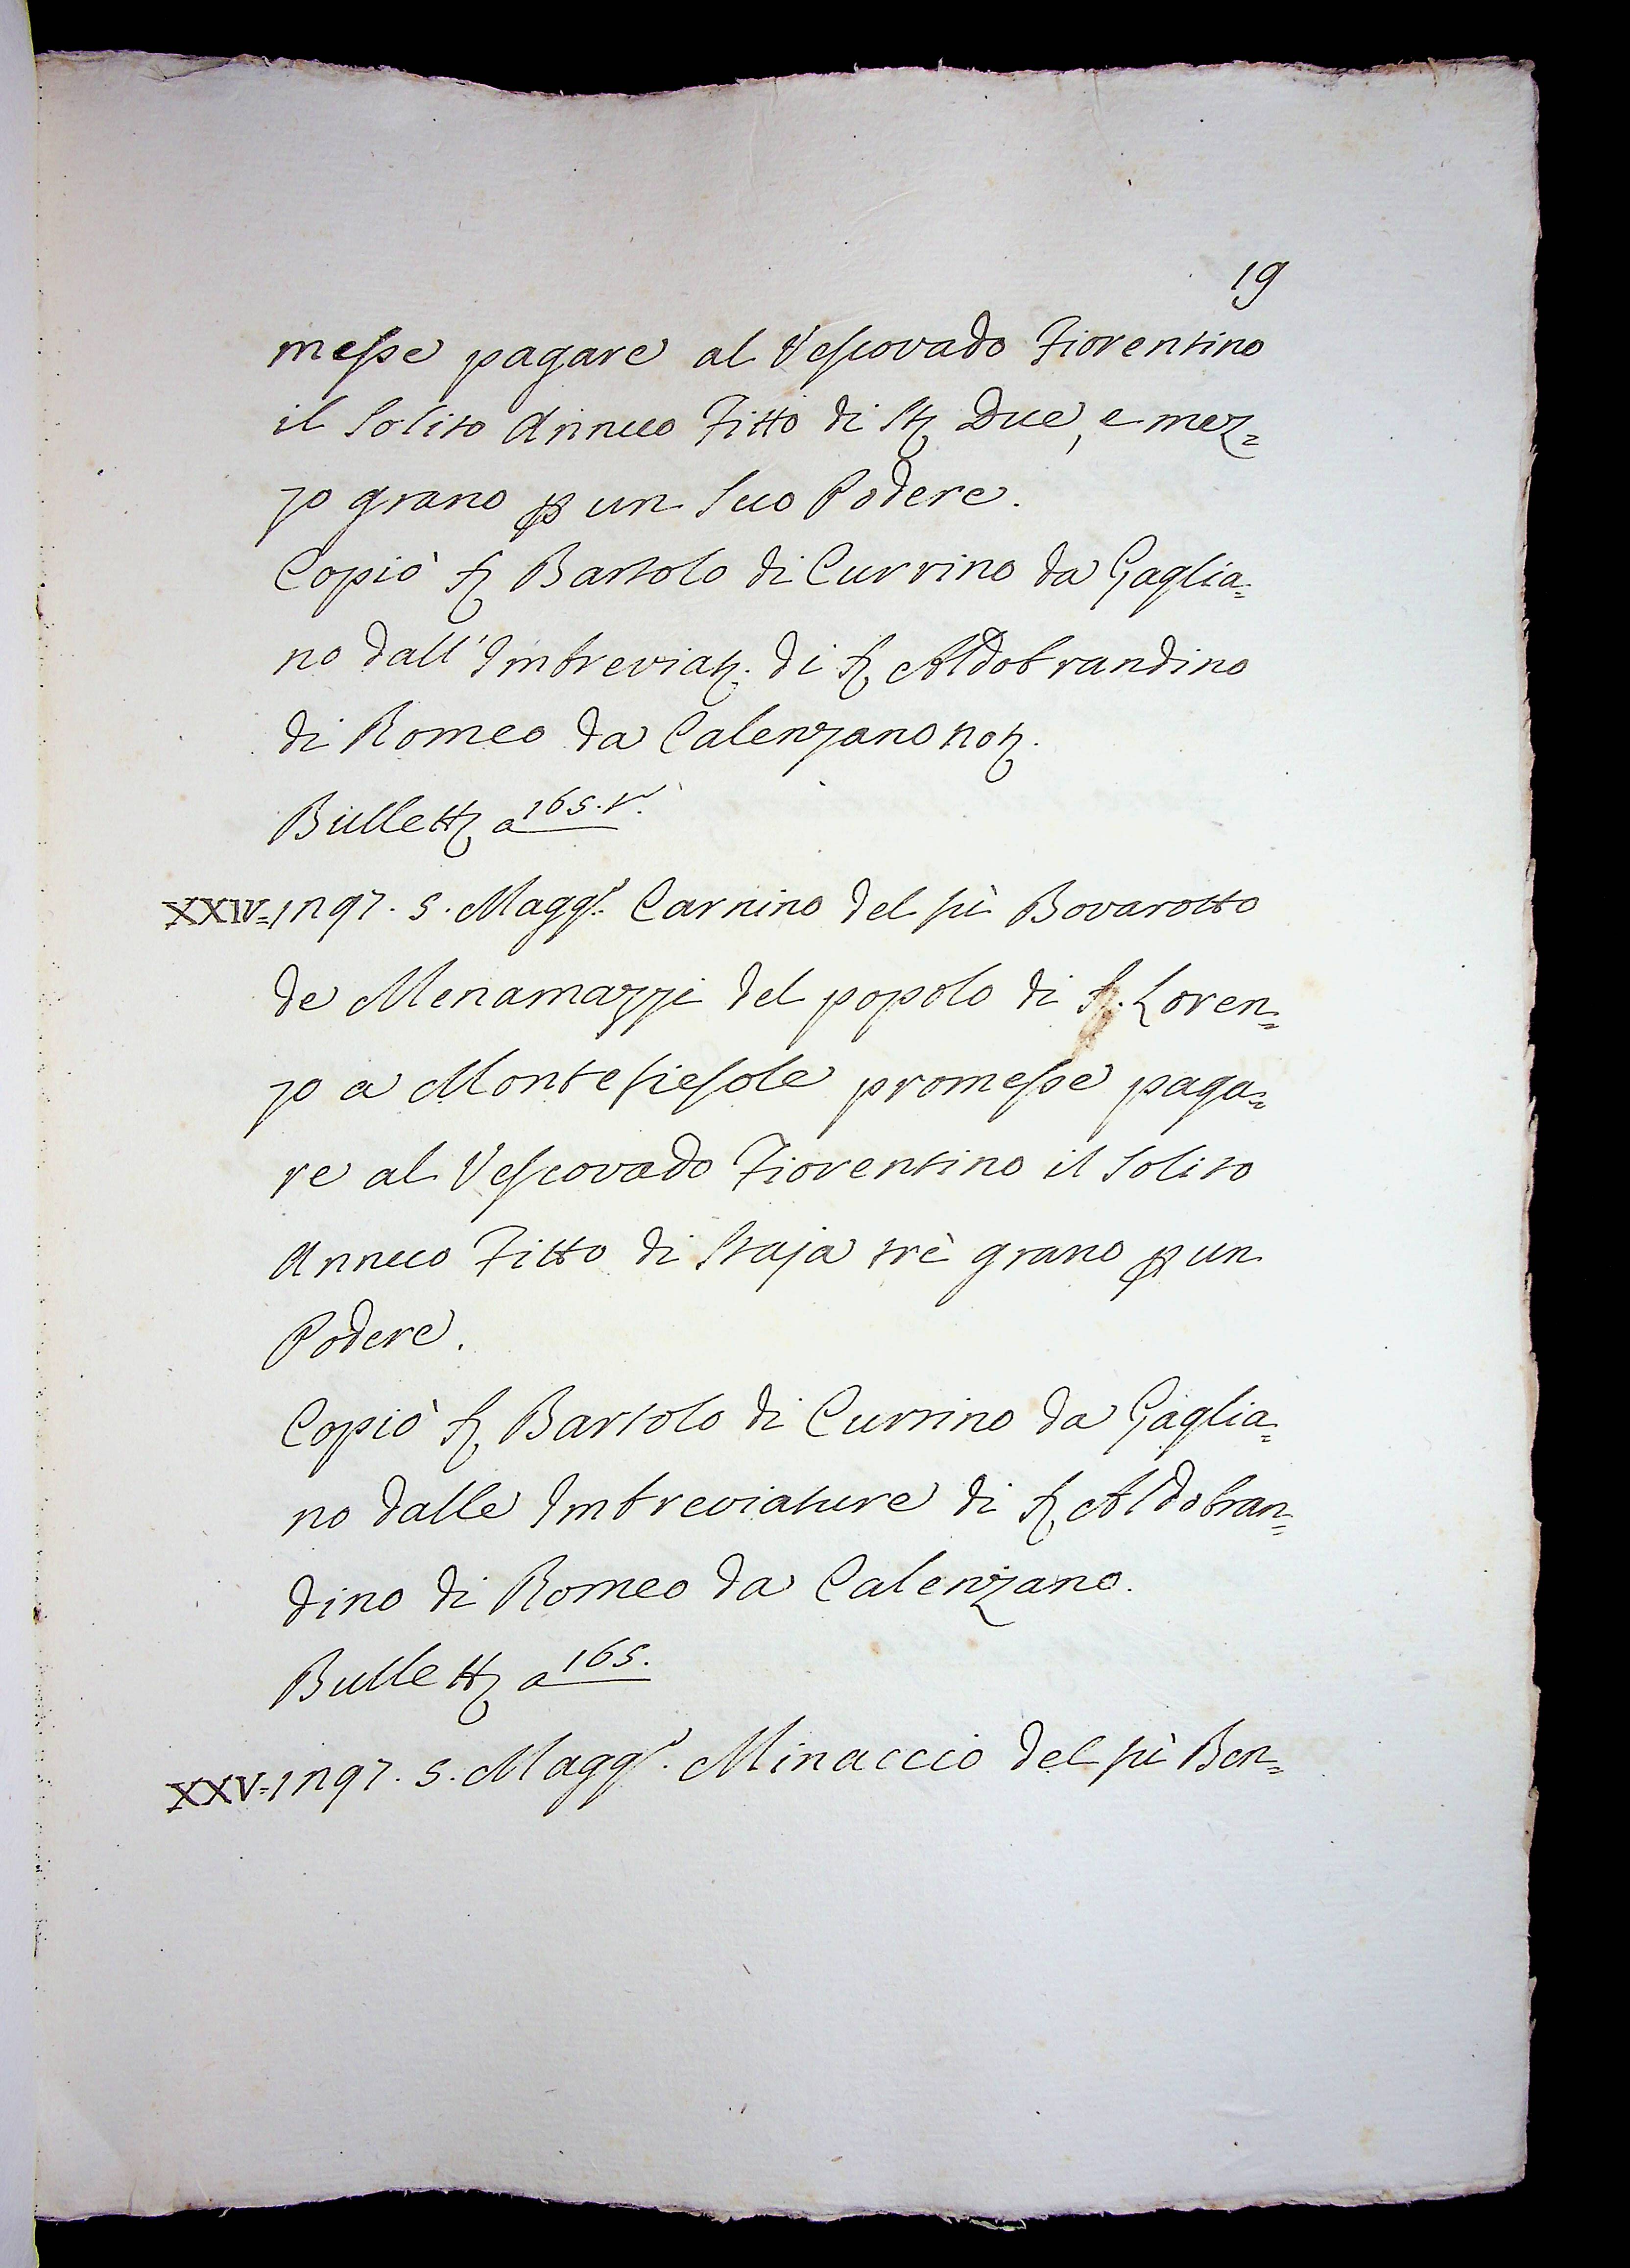 19
messe pagare al Vescovado Fiorentino
il Solito Annuo Fitto di St. Due, e mez=
zo grano p un Suo Podere.
Copiò S. Bartolo di Currino da Gaglia=
no dall'Imbreviat. di S. Aldobrandino
di Romeo da Calenzano not.
Bullett. a 165. v.
XXIV=1297. 5. Magg.º Carnino del fù Bovarotto
de Menamazzi del popolo di S. Loren=
zo a Montefiesole promesse paga=
re al Vescovado Fiorentino il Solito
Annuo Fitto di Staja trè grano p un
Podere.
Copiò S. Bartolo di Currino da Gaglia=
no dalle Imbreviature di S. Aldobran=
dino di Romeo da Calenzano.
Bullett. a 165.
XXV=1297. 5. Magg.º Minaccio del fù Ben=